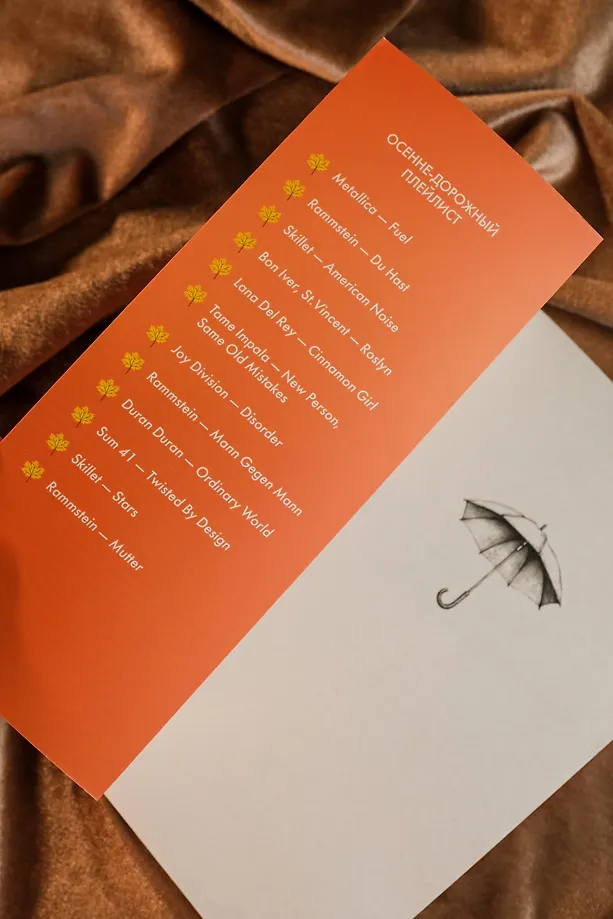 ОСЕННЕ-ДОРОЖНЫЙ
ПЛЕЙЛИСТ
Metallica — Fuel
Rammstein — Du Hast
Skillet — American Noise
Bon Iver, St.Vincent — Roslyn
Lana Del Rey — Cinnamon Girl
Tame Impala — New Person,
Same Old Mistakes
Joy Division — Disorder
Rammstein — Mann Gegen Mann
Duran Duran — Ordinary World
Sum 41 — Twisted By Design
Skillet — Stars
Rammstein — Mutter